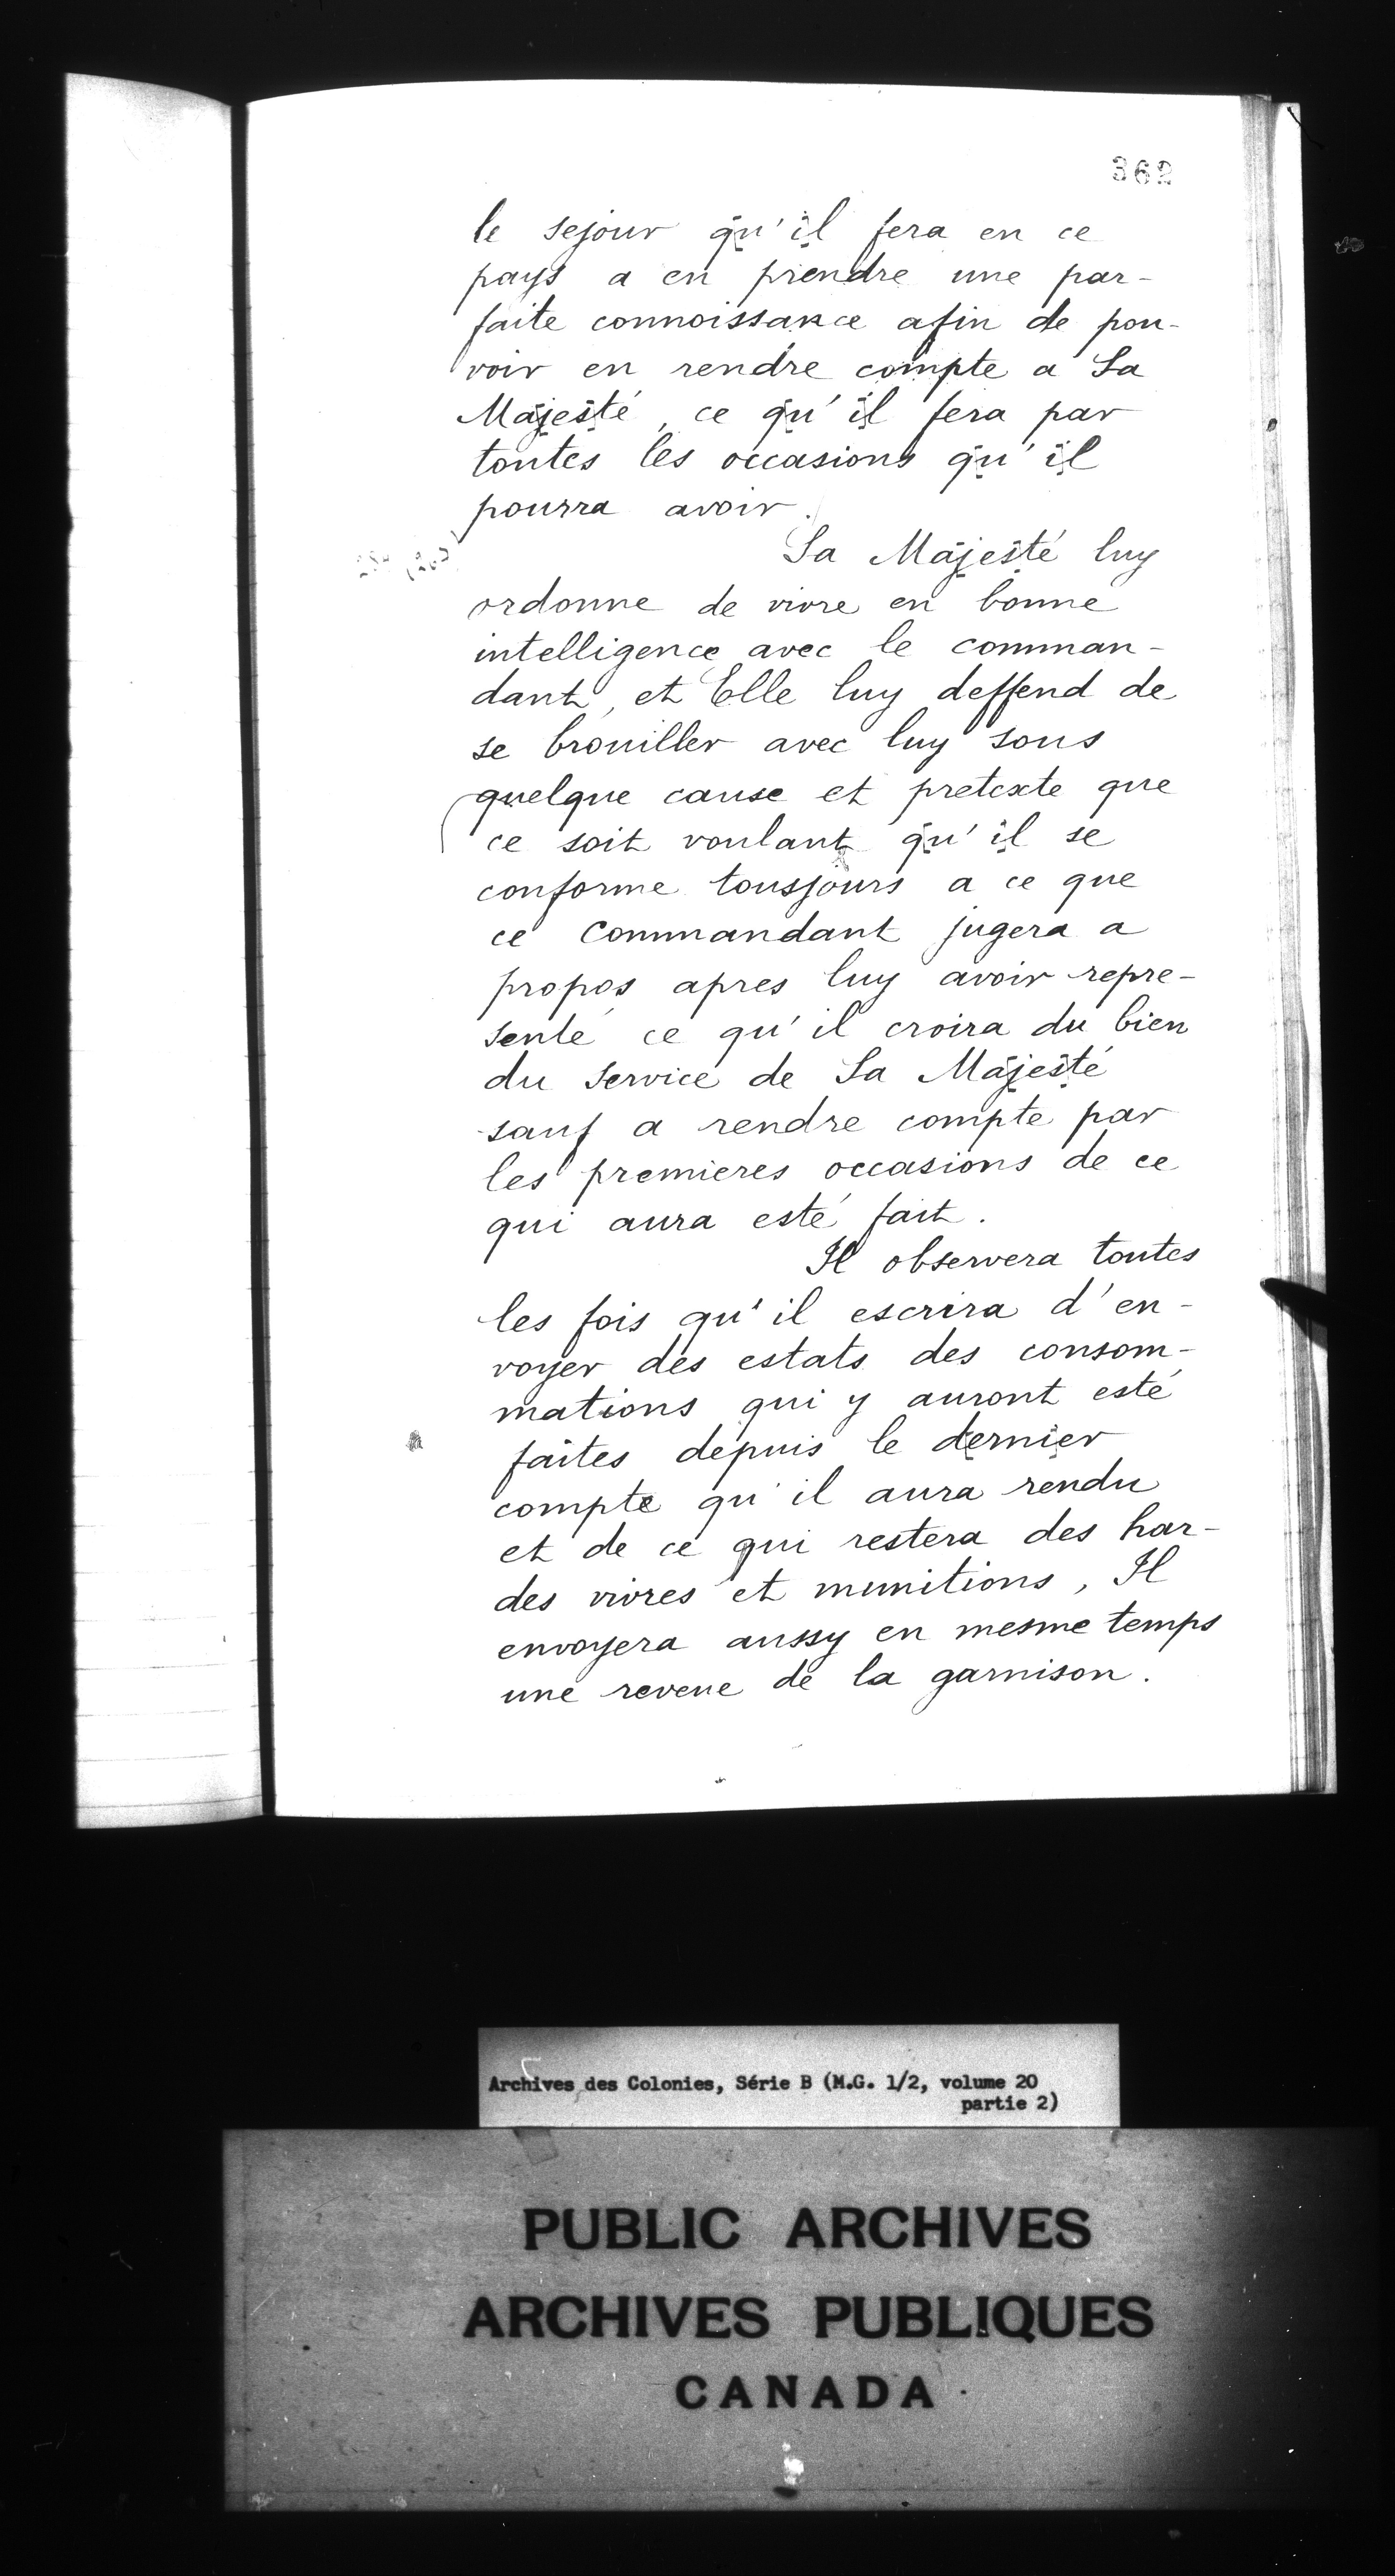 362
le sejour qu'il fera en ce
pays a en prendre une par-
faite connoissance afin de pou-
voir en rendre compte a Sa
Majesté, ce qu'il fera par
toutes les occasions qu'il
pourra avoir.
Sa Majesté luy
ordonne de vivre en bonne
intelligence avec le comman-
dant, et Elle luy deffend de
se brouiller avec luy sous
quelque cause et pretexte que
ce soit voulant qu'il se
conforme tousjours a ce que
ce Commandant jugera a
propos apres luy avoir repre-
senté ce qu'il croira du bien
du Service de Sa Majesté
sauf a rendre compte par
les premieres occasions de ce
qui aura esté fait.
Il observera toutes
les fois qu'il escrira d'en-
voyer des estats des consom-
mations qui y auront esté
faites depuis le dernier
compte qu'il aura rendu
et de ce qui restera des har-
des vivres et munitions, Il
envoyera aussy en mesme temps
une reveue de la garnison.
Archives des Colonies, Série B (M.G. 1/2, volume 20
partie 2)
PUBLIC ARCHIVES
ARCHIVES PUBLIQUES
CANADA